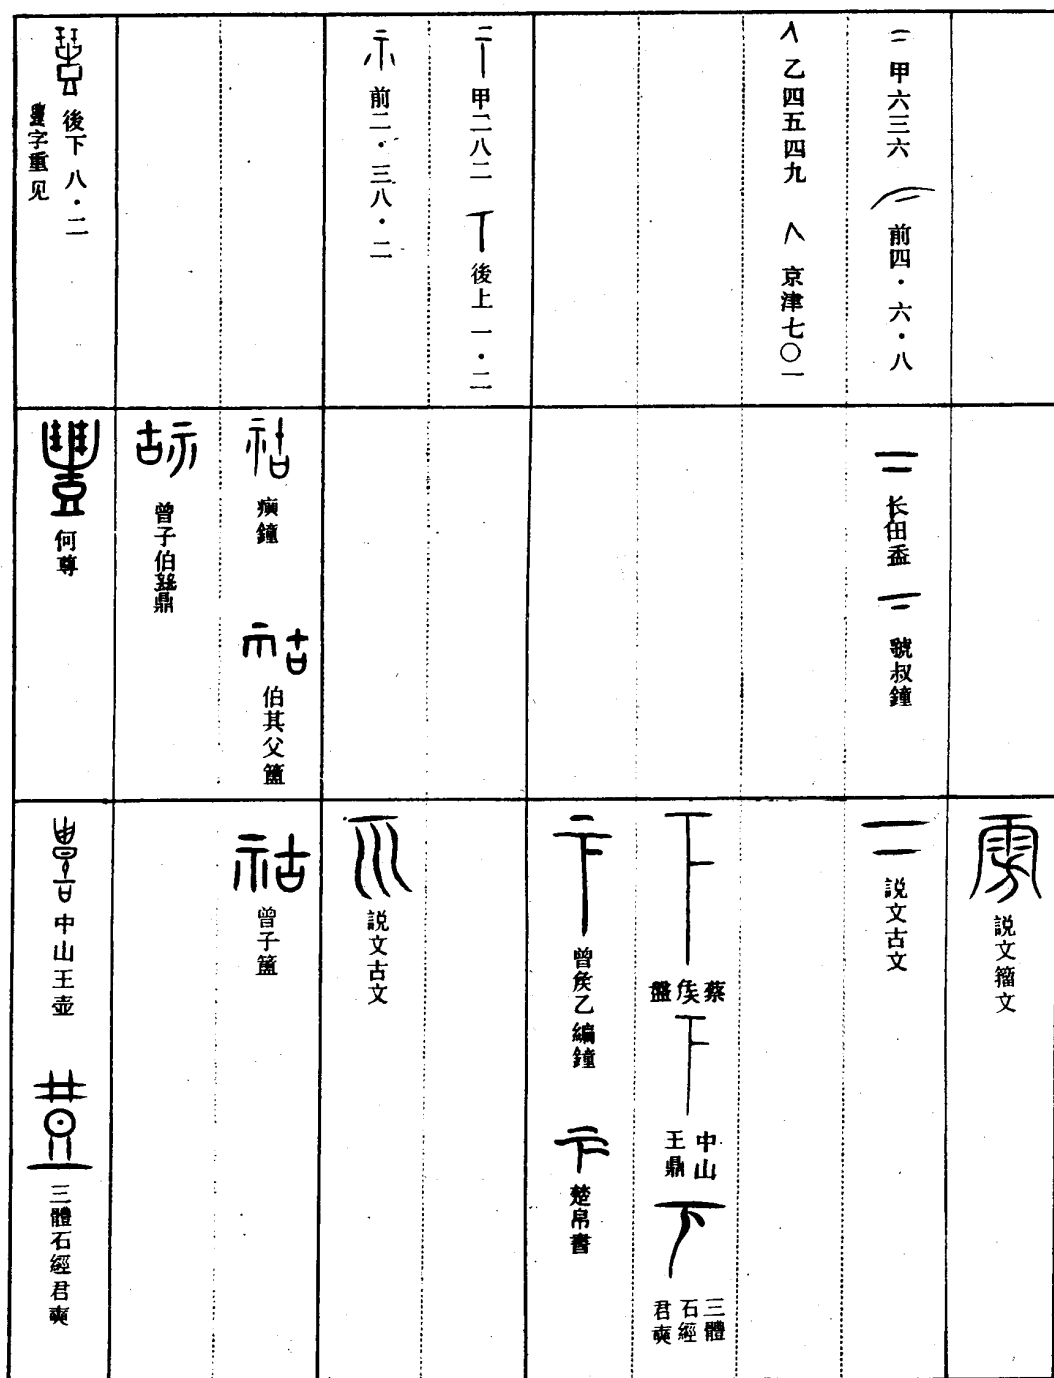 甲六三六
前四·六·八
乙四五四九
京津七〇一
甲二八二
後上一·二
前二·三八·二
後下八·二
豊字重见
长田盉
虢叔鐘
𤼈鐘
伯其父簠
曾子伯鼎
何尊
説文籀文
説文古文
蔡矦盤
中山王鼎
三體石經君奭
曾矦乙編鐘
楚帛書
説文古文
曾子簠
中山王壺
三體石經君奭